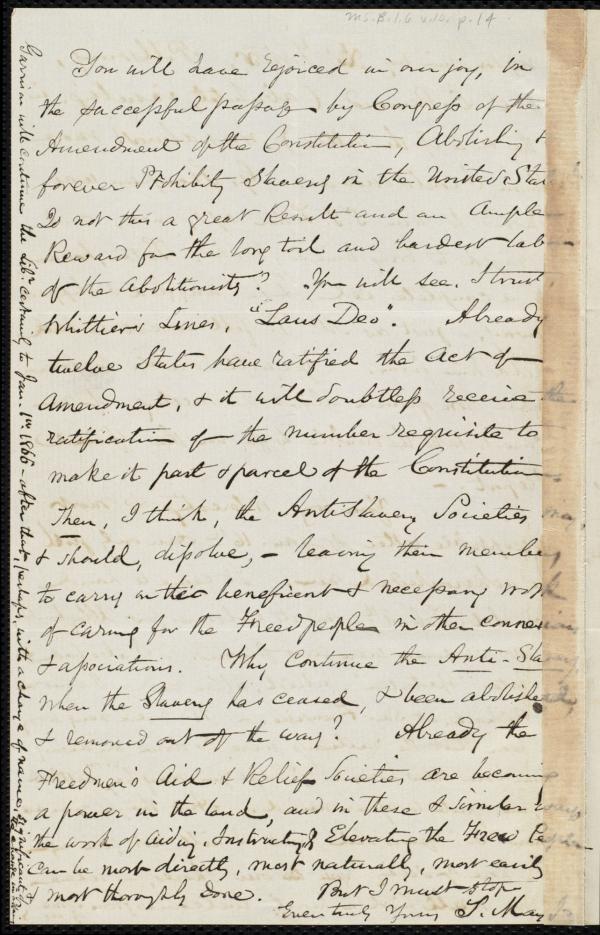 Ms. B. 1. 6 v. 10. p. 14
You will have rejoiced in our joy, in
the successful passage by Congress of the
Amendment of the Constitution, Abolishing &
forever Prohibiting Slavery in the United Stat
Is not this a great Result and an Ample
Reward for the long toil and hardest labor
of the Abolitionists? You will see, I trust,
Whittier's Lines, "Laus Deo". Already
twelve States have ratified the Act of
Amendment, & it will doubtless receive the
ratification of the number requisite to
make it part & parcel of the Constitution.
Then, I think, the AntiSlavery Societies may,
& should, dissolve, – leaving their members
to carry on the beneficent & necessary work
of caring for the Freedpeople in other connexions
& associations. Why continue the Anti-Slavery,
when the Slavery has ceased, & been abolished,
& removed out of the way? Already the
Freedmen's Aid & Relief Societies are becoming
a power in the land, and in these & similar ways
the work of Aiding, Instructing & Elevating the Freed People
can be most directly, most naturally, most easily
& most thoroughly done. But I must stop
Ever truly Yours S. May Jr
Garrison will continue the Libr. certainly to Jan. 1st 1866 – after that, perhaps, with a change of name,